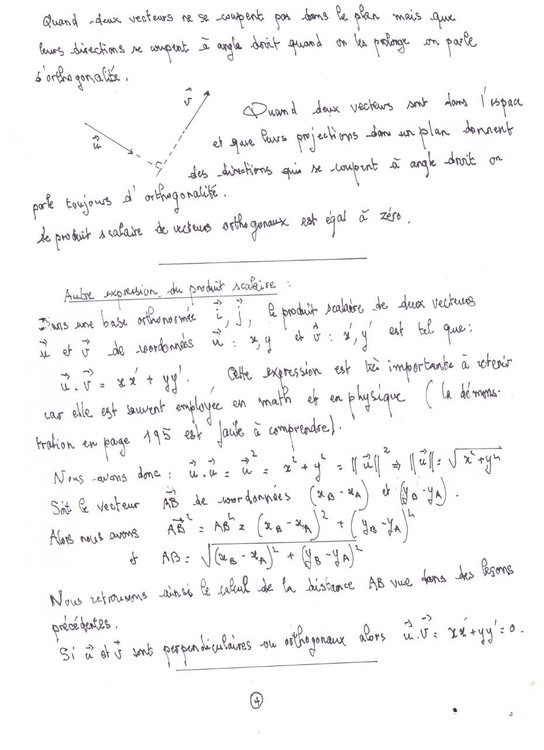 Quand deux vecteurs ne se coupent pas dans le plan mais que
leurs directions se coupent à angle droit quand on les prolonge on parle
d'orthogonalité.
v⃗
u⃗
Quand deux vecteurs sont dans l'espace
et que leurs projections dans un plan donnent
des directions qui se coupent à angle droit on
parle toujours d'orthogonalité.
Le produit scalaire de vecteurs orthogonaux est égal à zéro.
Autre expression du produit scalaire :
Dans une base orthonormée i⃗, j⃗, le produit scalaire de deux vecteurs
u⃗ et v⃗ de coordonnées u⃗ : x, y et v⃗ : x', y' est tel que :
u⃗.v⃗ = xx' + yy'. Cette expression est très importante à retenir
car elle est souvent employée en math et en physique (la démons-
tration en page 195 est facile à comprendre).
Nous avons donc : u⃗.u⃗ = u⃗² = x² + y² = ||u⃗||² ⇒ ||u⃗|| = √(x² + y²)
Soit le vecteur AB⃗ de coordonnées (xB - xA) et (yB - yA).
Alors nous avons AB⃗² = AB² = (xB - xA)² + (yB - yA)²
et AB = √((xB - xA)² + (yB - yA)²)
Nous retrouvons ainsi le calcul de la distance AB vue dans des leçons
précédentes.
Si u⃗ et v⃗ sont perpendiculaires ou orthogonaux alors u⃗.v⃗ = xx' + yy' = 0.
4